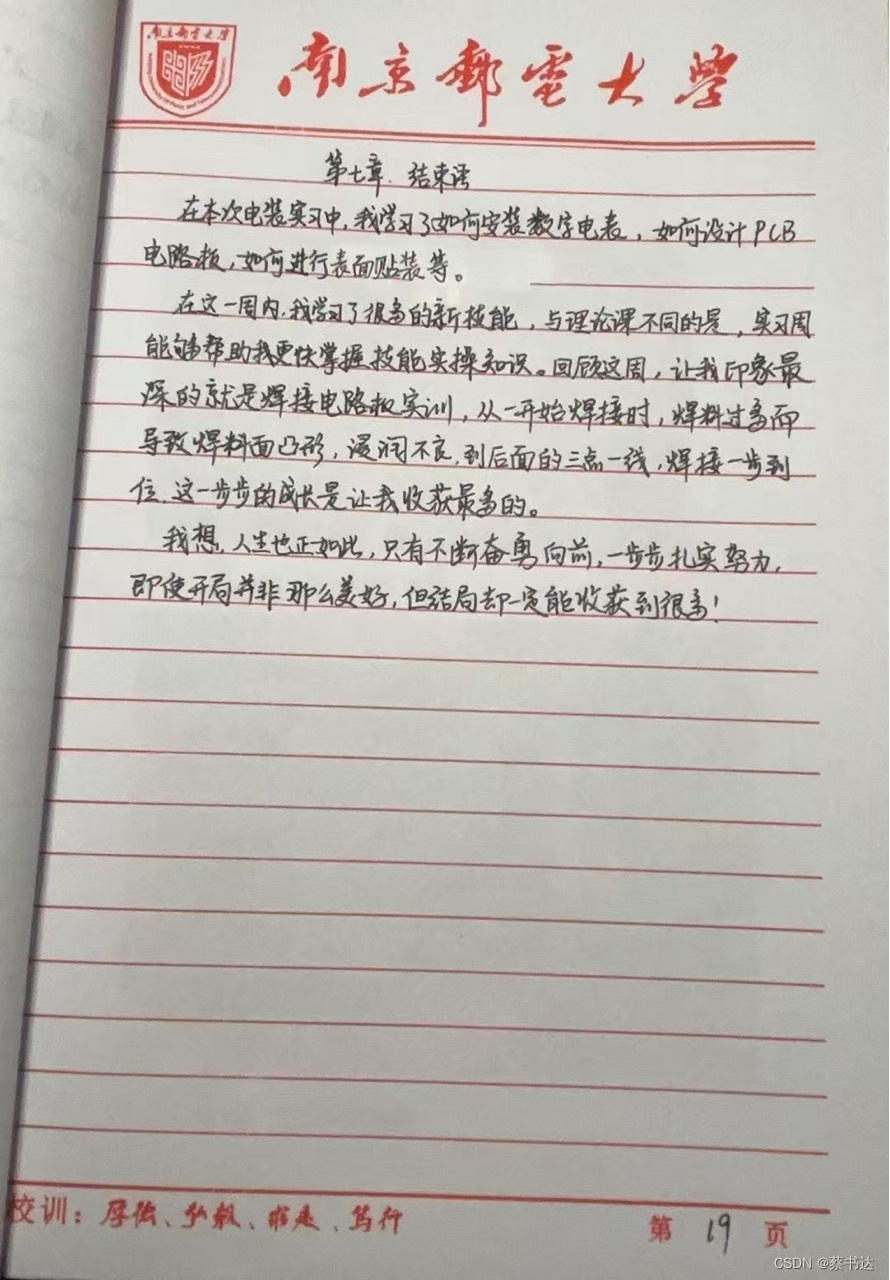 南京郵電大學
南京郵電大學
第七章. 结束语
在本次电装实习中,我学习了如何安装数字电表,如何设计PCB
电路板,如何进行表面贴装等。
在这一周内,我学习了很多的新技能,与理论课不同的是,实习周
能够帮助我更快掌握技能实操知识。回顾这周,让我印象最
深的就是焊接电路板实训,从一开始焊接时,焊料过多而
导致焊料面凸形,浸润不良,到后面的三点一线,焊接一步到
位,这一步步的成长是让我收获最多的。
我想,人生也正如此,只有不断奋勇向前,一步步扎实努力,
即使开局并非那么美好,但结局却一定能收获到很多!
校训:厚德、弘毅、求是、笃行
第 19 页
CSDN @蔡书达